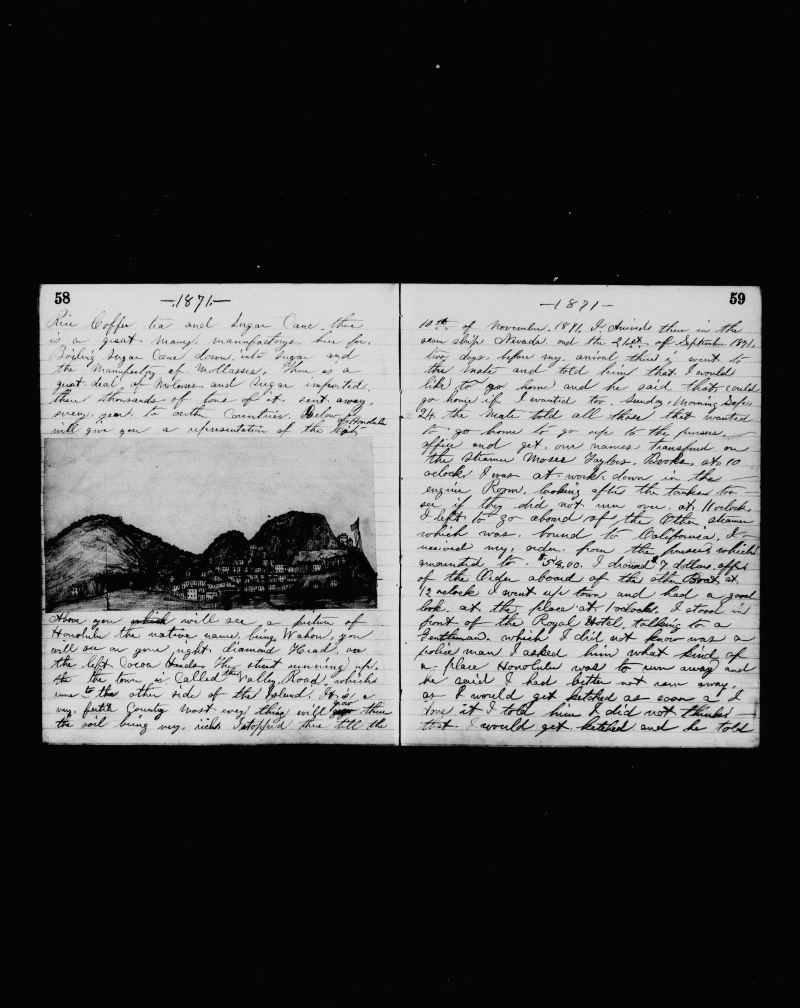 58
—1871—
Rice Coffee tea and Sugar Cane there
is a great many manufactorys here for
Boiling Sugar Cane down into Sugar and
the Manufactory of Mollasses. There is a
great deal of Molasses and Sugar imported.
there thousands of tons of it sent away,
every year to outher Countries. Below
will give you a representation of the City
of Honolulu
Above you which will see a picture of
Honolulu the native name being Wahou, you
will see on your right diamond Head, on
the left Cocoa The street running up.
the town is Called the Valley Road, which
runs to the other side of the Island. It is a
very fertile Country most every thing will grow there
the soil being very rich. I stopped there till the
59
—1871—
10th of November. 1871. I arrived there in the
steam ship Nevada on the 21st of September 1871.
two days before my arival there I went to
the Mate and told him that I would
like to go home and he said that I could
go home if I wanted too. Sunday, Morning Sept.
24 the Mate told all those that wanted
to go home to go up to the pursers,
office and get our names transfered on
the Steamer Moses Taylors. Books, at 10
oclock I was at work down in the
engine Room, looking after the tanks too
see if they did not run over. at 11 oclock,
I left to go aboard of the Other steamer
which was bound to California. I
received my order from the purser which
amounted to $54.00. I drawed $7 dollars off
of the Order aboard of the other Boat, at
12 oclock I went up town and had a good
look at the place at 1 oclock, I stood in
front of the Royal Hotel, talking to a
Gentleman which I did not know was a
police man I asked him what kind of
a place Honolulu was to run away and
he said I had better not run away.
as I would get ketched as soon as I
done it I told him I did not think
that I would get ketched and he told